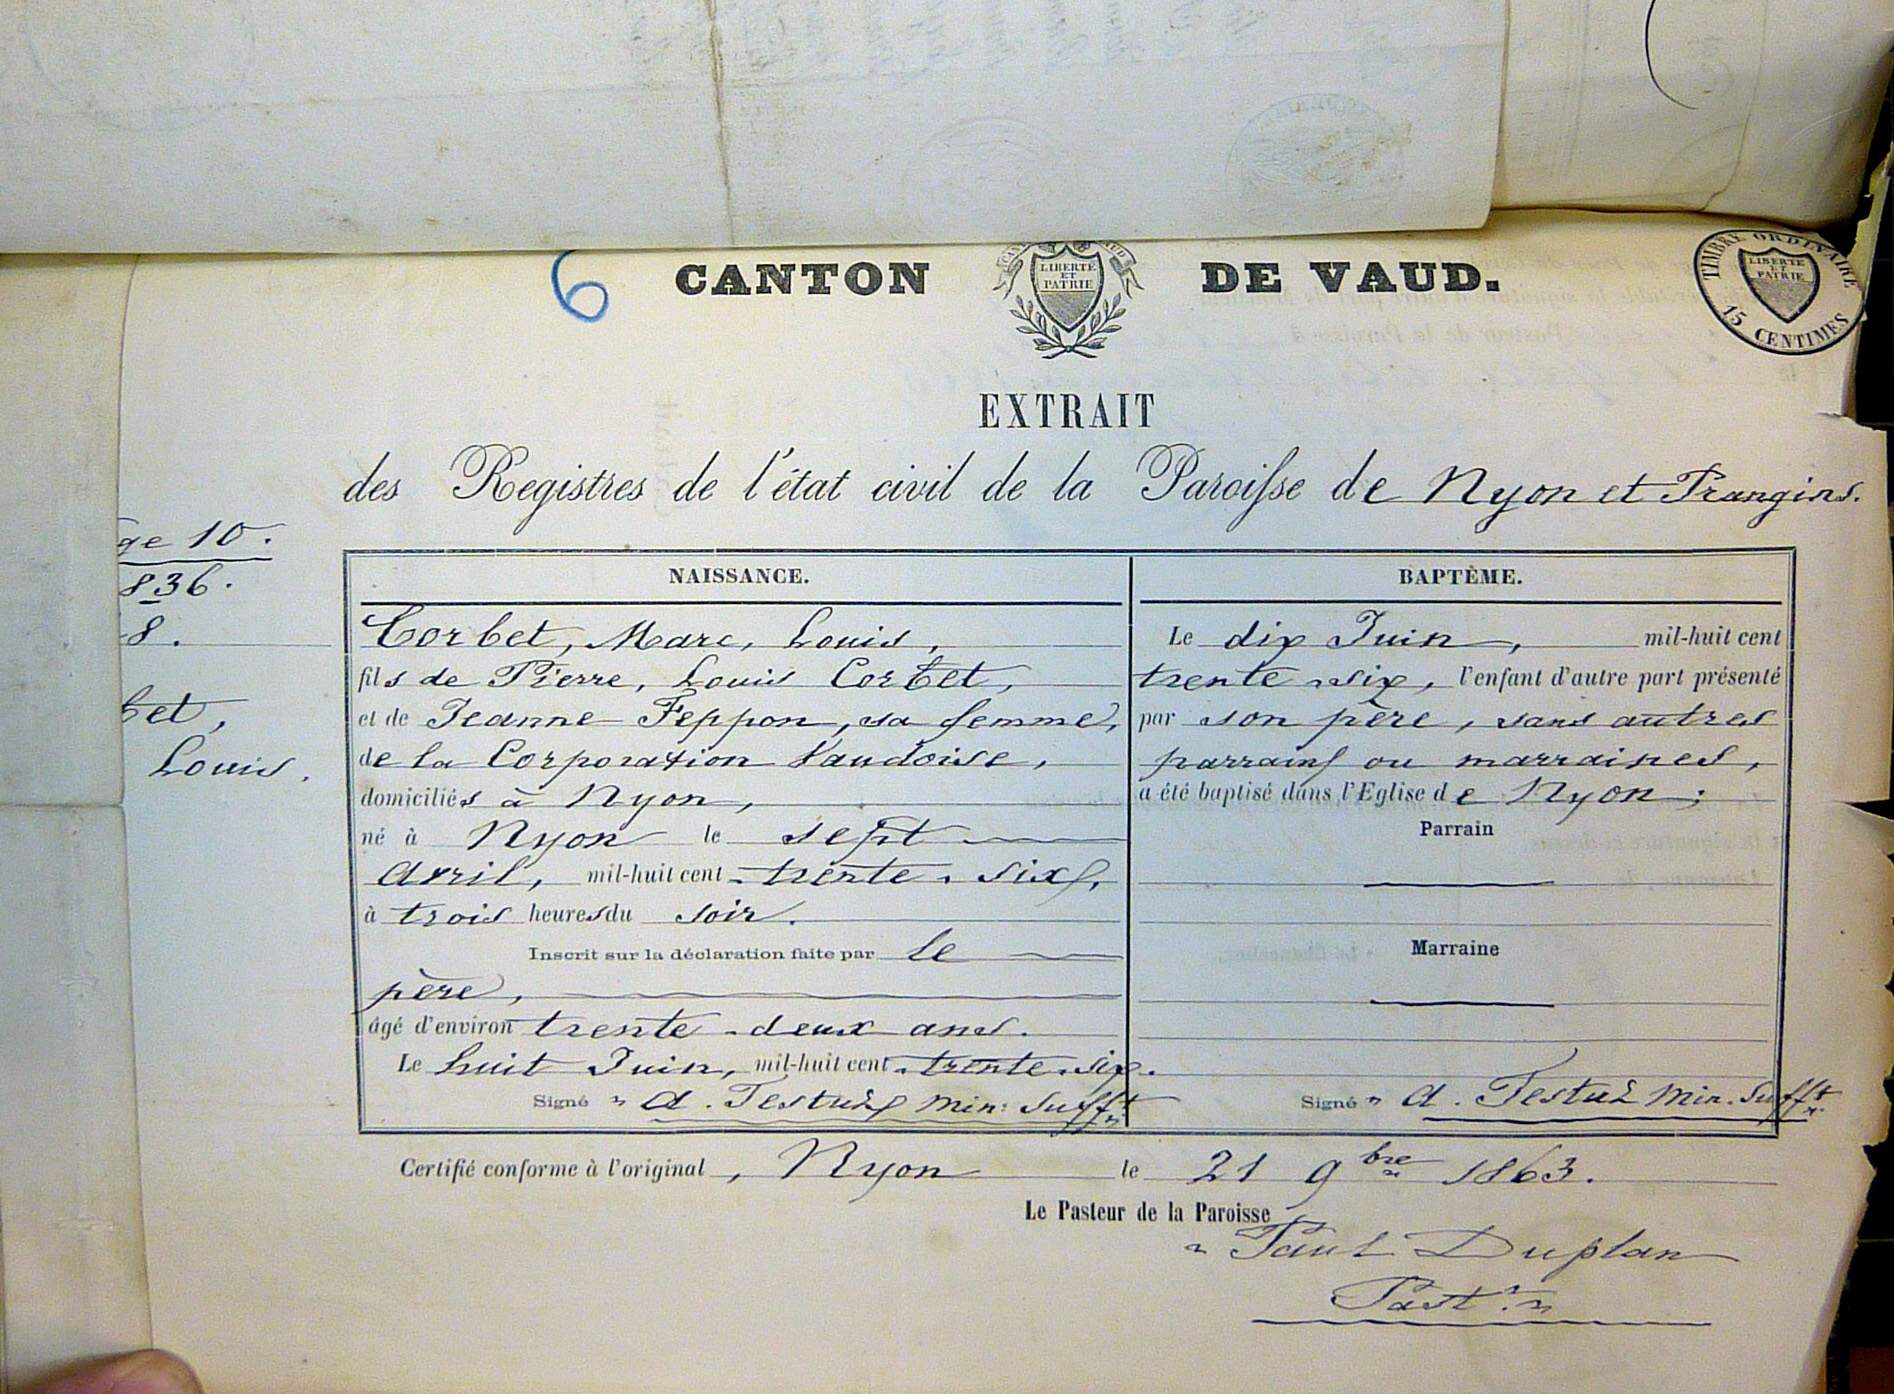 6
CANTON DE VAUD.
LIBERTÉ
ET
PATRIE
TIMBRE ORDINAIRE
LIBERTÉ
ET
PATRIE
15 CENTIMES
EXTRAIT
des Registres de l'état civil de la Paroisse de Nyon et Prangins.
ge 10.
836.
8.
bet,
Louis.
NAISSANCE.
Corbet, Marc, Louis,
fils de Pierre, Louis Corbet,
et de Jeanne Feppon, sa femme,
de la Corporation Vaudoise,
domiciliés à Nyon,
né à Nyon le sept
Avril, mil-huit cent trente-six,
à trois heures du soir.
Inscrit sur la déclaration faite par le
père,
âgé d'environ trente-deux ans.
Le huit Juin, mil-huit cent trente-six.
Signé " A. Testuz min: Sufft "
BAPTÊME.
Le dix Juin, mil-huit cent
trente-six, l'enfant d'autre part présenté
par son père, sans autres
parrains ou marraines,
a été baptisé dans l'Eglise de Nyon;
Parrain
Marraine
Signé " A. Testuz Min. Sufft "
Certifié conforme à l'original, Nyon le 21 9bre 1863.
Le Pasteur de la Paroisse
" Paul Duplan
Past. "